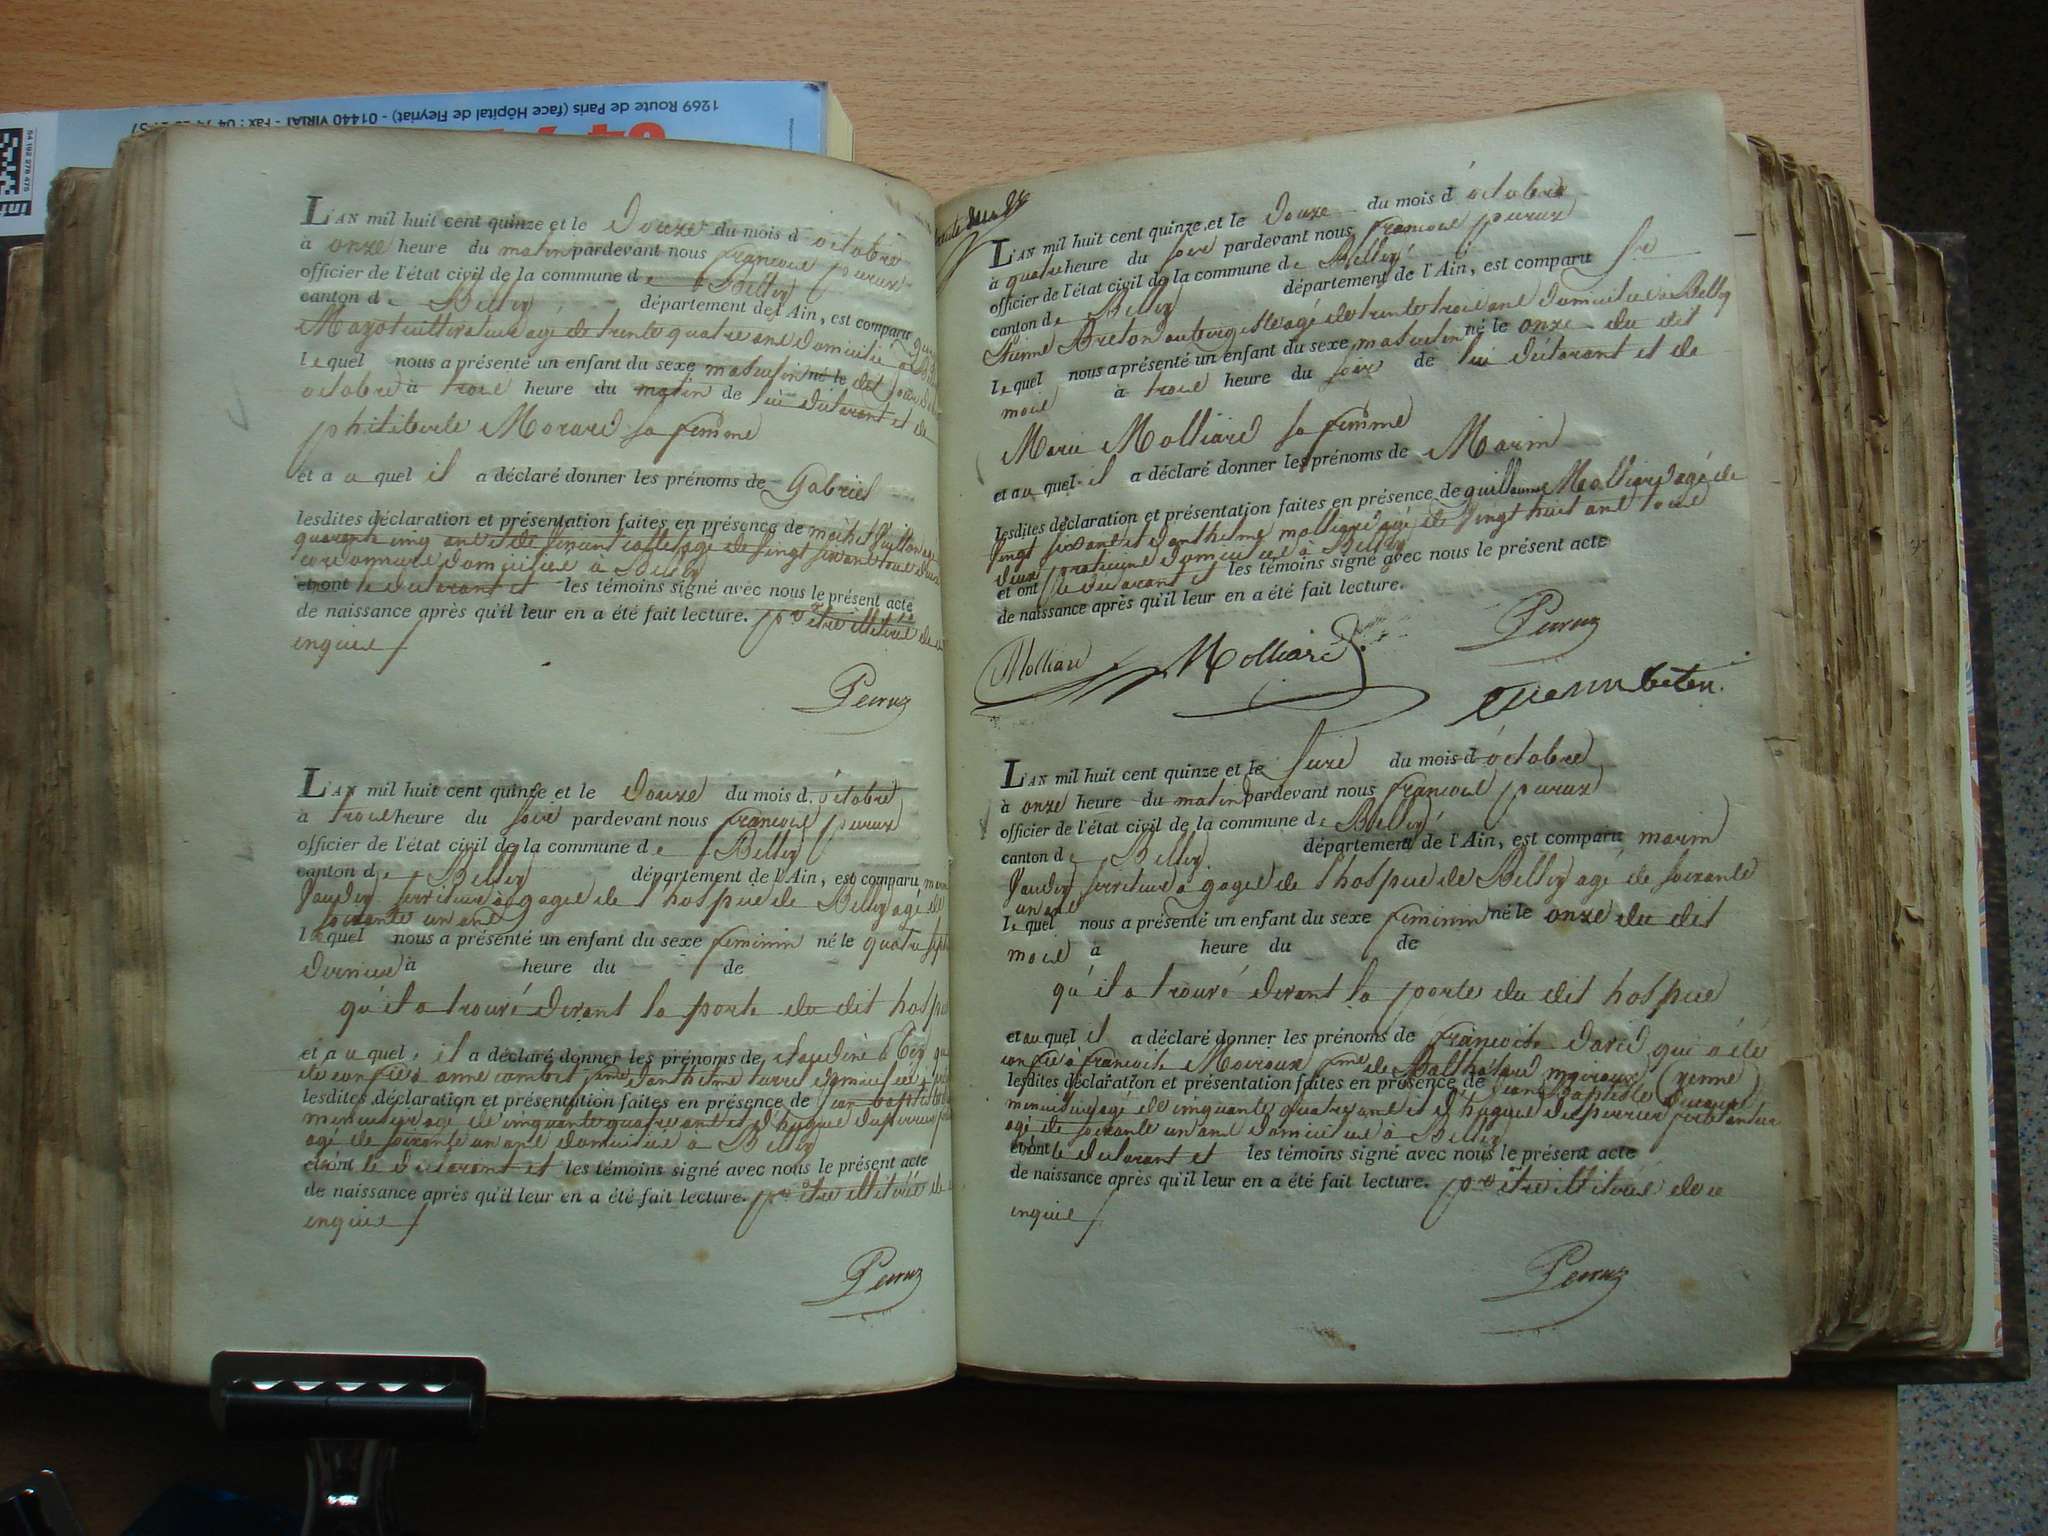 1269 Route de Paris (face Hôpital de Fleyriat) - 01440 VIRIAT - Fax : 04 74
54 192 278 475
L'AN mil huit cent quinze et le Douze du mois d'octobre
à onze heure du matin pardevant nous françois peruz
officier de l'état civil de la commune de Belley
canton de Belley département de l'Ain, est comparu
Mazot cultivateur agé de trente quatre ans domicilié à
lequel nous a présenté un enfant du sexe masculin né le dit jour
octobre à trois heure du matin de lui déclarant et de
philiberte Morard sa femme
et auquel il a déclaré donner les prénoms de Gabriel
lesdites déclaration et présentation faites en présence de
quarante cinq ans et de agé de vingt ans tous deux
cordonniers domiciliés à Belley
et ont le déclarant et les témoins signé avec nous le présent acte
de naissance après qu'il leur en a été fait lecture. pr être illitérés de ce
enquis
Peruz
L'AN mil huit cent quinze et le Douze du mois d'octobre
à trois heure du soir pardevant nous françois peruz
officier de l'état civil de la commune de Belley
canton de Belley département de l'Ain, est comparu
serviteur à gages de l'hospice de Belley agé de
soixante un ans
lequel nous a présenté un enfant du sexe feminin né le quatre
dernier à heure du de
qu'il a trouvé devant la porte du dit hospice
et auquel il a déclaré donner les prénoms de
été confiée à anne combet fme d'anthelme domiciliée à
lesdites déclaration et présentation faites en présence de jean baptiste
menuisier agé de cinquante quatre ans et d'hugues duperrier
agé de soixante un ans domiciliés à Belley
et ont le déclarant et les témoins signé avec nous le présent acte
de naissance après qu'il leur en a été fait lecture. pr être illitérés de
enquis
Peruz
L'AN mil huit cent quinze et le Douze du mois d'octobre
à quatre heure du soir pardevant nous françois peruz
officier de l'état civil de la commune de Belley
canton de Belley département de l'Ain, est comparu Sr
Breton aubergiste agé de trente trois ans domicilié à Belley
lequel nous a présenté un enfant du sexe masculin né le onze du dit
mois à trois heure du soir de lui déclarant et de
Marie Molliard sa femme
et auquel il a déclaré donner les prénoms de Marin
lesdites déclaration et présentation faites en présence de guillaume Molliard agé de
vingt six ans et d'anthelme molliard agé de vingt huit ans tous
deux praticiens domiciliés à Belley
et ont le déclarant et les témoins signé avec nous le présent acte
de naissance après qu'il leur en a été fait lecture.
Peruz
Molliard Molliard
L'AN mil huit cent quinze et le seize du mois d'octobre
à onze heure du matin pardevant nous françois peruz
officier de l'état civil de la commune de Belley
canton de Belley département de l'Ain, est comparu marin
serviteur à gages de l'hospice de Belley agé de soixante
un ans
lequel nous a présenté un enfant du sexe feminin né le onze du dit
mois à heure du de
qu'il a trouvé devant la porte du dit hospice
et auquel il a déclaré donner les prénoms de françoise David qui a été
confiée à françoise Moiroux fme de Balthazard moiroux (yenne)
lesdites déclaration et présentation faites en présence de jean Baptiste
menuisier agé de cinquante quatre ans et d'hugues duperrier
agé de soixante un ans domiciliés à Belley
et ont le déclarant et les témoins signé avec nous le présent acte
de naissance après qu'il leur en a été fait lecture. pr être illitérés de ce
enquis
Peruz